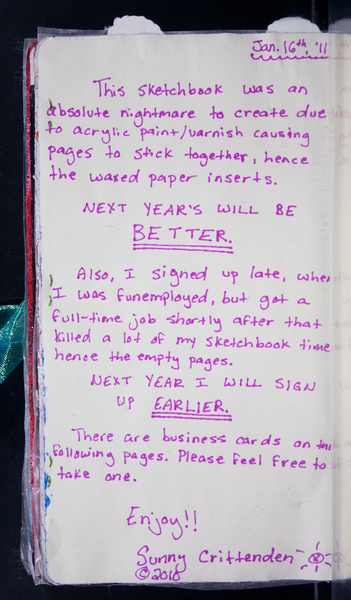 Jan. 16th, '11
This sketchbook was an
absolute nightmare to create due
to acrylic paint/varnish causing
pages to stick together, hence
the waxed paper inserts.
NEXT YEAR'S WILL BE
BETTER.
Also, I signed up late, when
I was funemployed, but got a
full-time job shortly after that
killed a lot of my sketchbook time
hence the empty pages.
NEXT YEAR I WILL SIGN
UP EARLIER.
There are business cards on the
following pages. Please feel free to
take one.
Enjoy!!
Sunny Crittenden
©2010